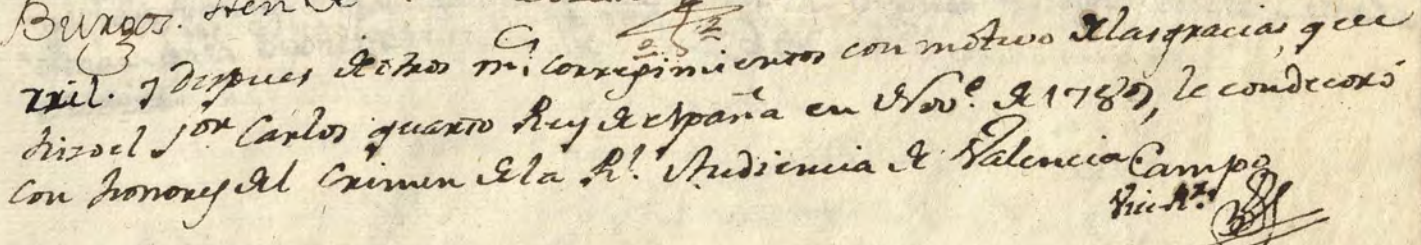 Burgos.
y despues de otros m.s corregimientos con motivo de las gracias, que
hizo el S.or Carlos quarto Rey de españa en Nov.e de 1789, le condecoró
con honores del Crimen de la R.l Audiencia de Valencia Campo